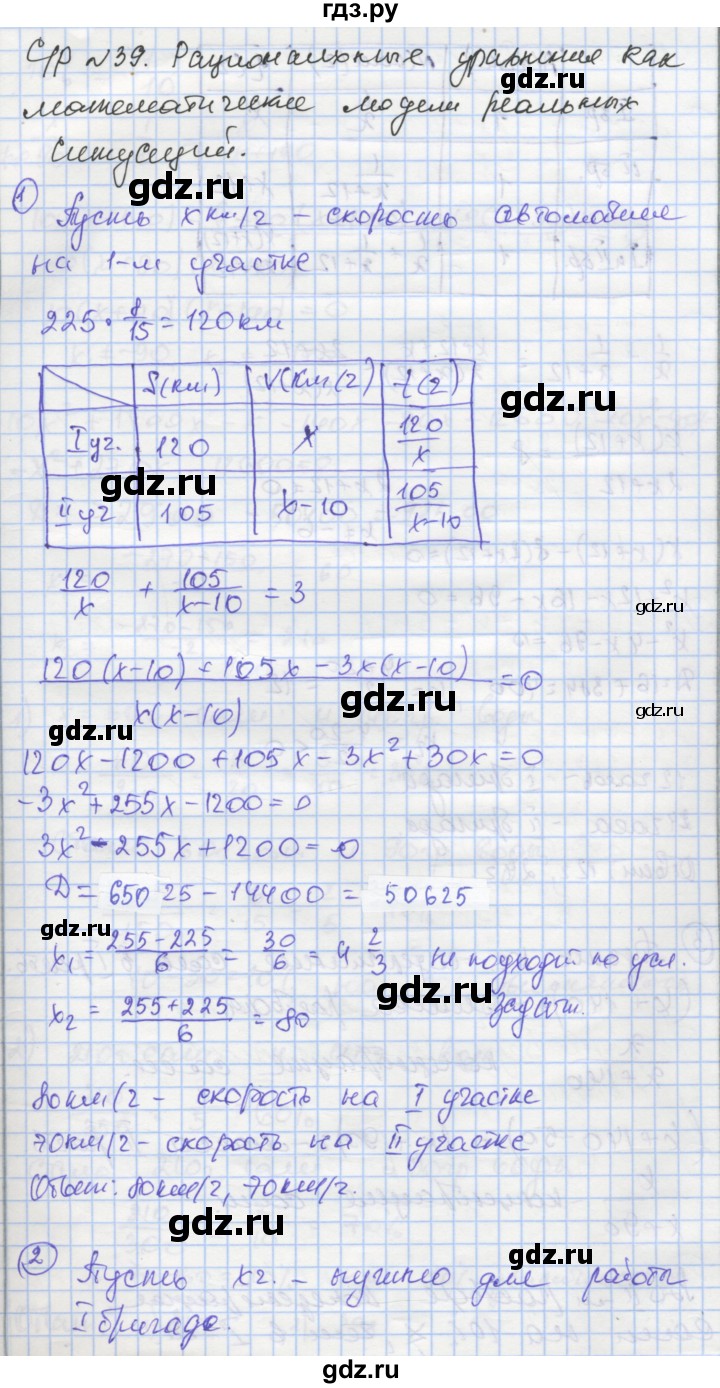 гдз.ру
С/р №39. Рациональные уравнения как
математические модели реальных
ситуаций.
gdz.ru
1 Пусть x км/ч – скорость автомобиля
на 1-м участке
gdz.ru
225 · 8/15 = 120 км
S(км) V(км/ч) t(ч)
I уч. 120 x 120/x
gdz.ru
II уч 105 x-10 105/(x-10)
120/x + 105/(x-10) = 3
gdz.ru
(120(x-10)+105x-3x(x-10))/(x(x-10)) = 0
gdz.ru
gdz.ru
gdz.ru
120x-1200+105x-3x²+30x=0
-3x²+255x-1200=0
3x²-255x+1200=0
D= 65025-14400 = 50625
gdz.ru
x₁ = (255-225)/6 = 30/6 = 4 2/3 не подходит по усл.
задачи.
x₂ = (255+225)/6 = 80
gdz.ru
80км/ч - скорость на I участке
70км/ч - скорость на II участке
Ответ: 80км/ч, 70км/ч.
gdz.ru
2 Пусть x ч. – нужно для работы
gdz.ru
I бригаде.
gdz.ru